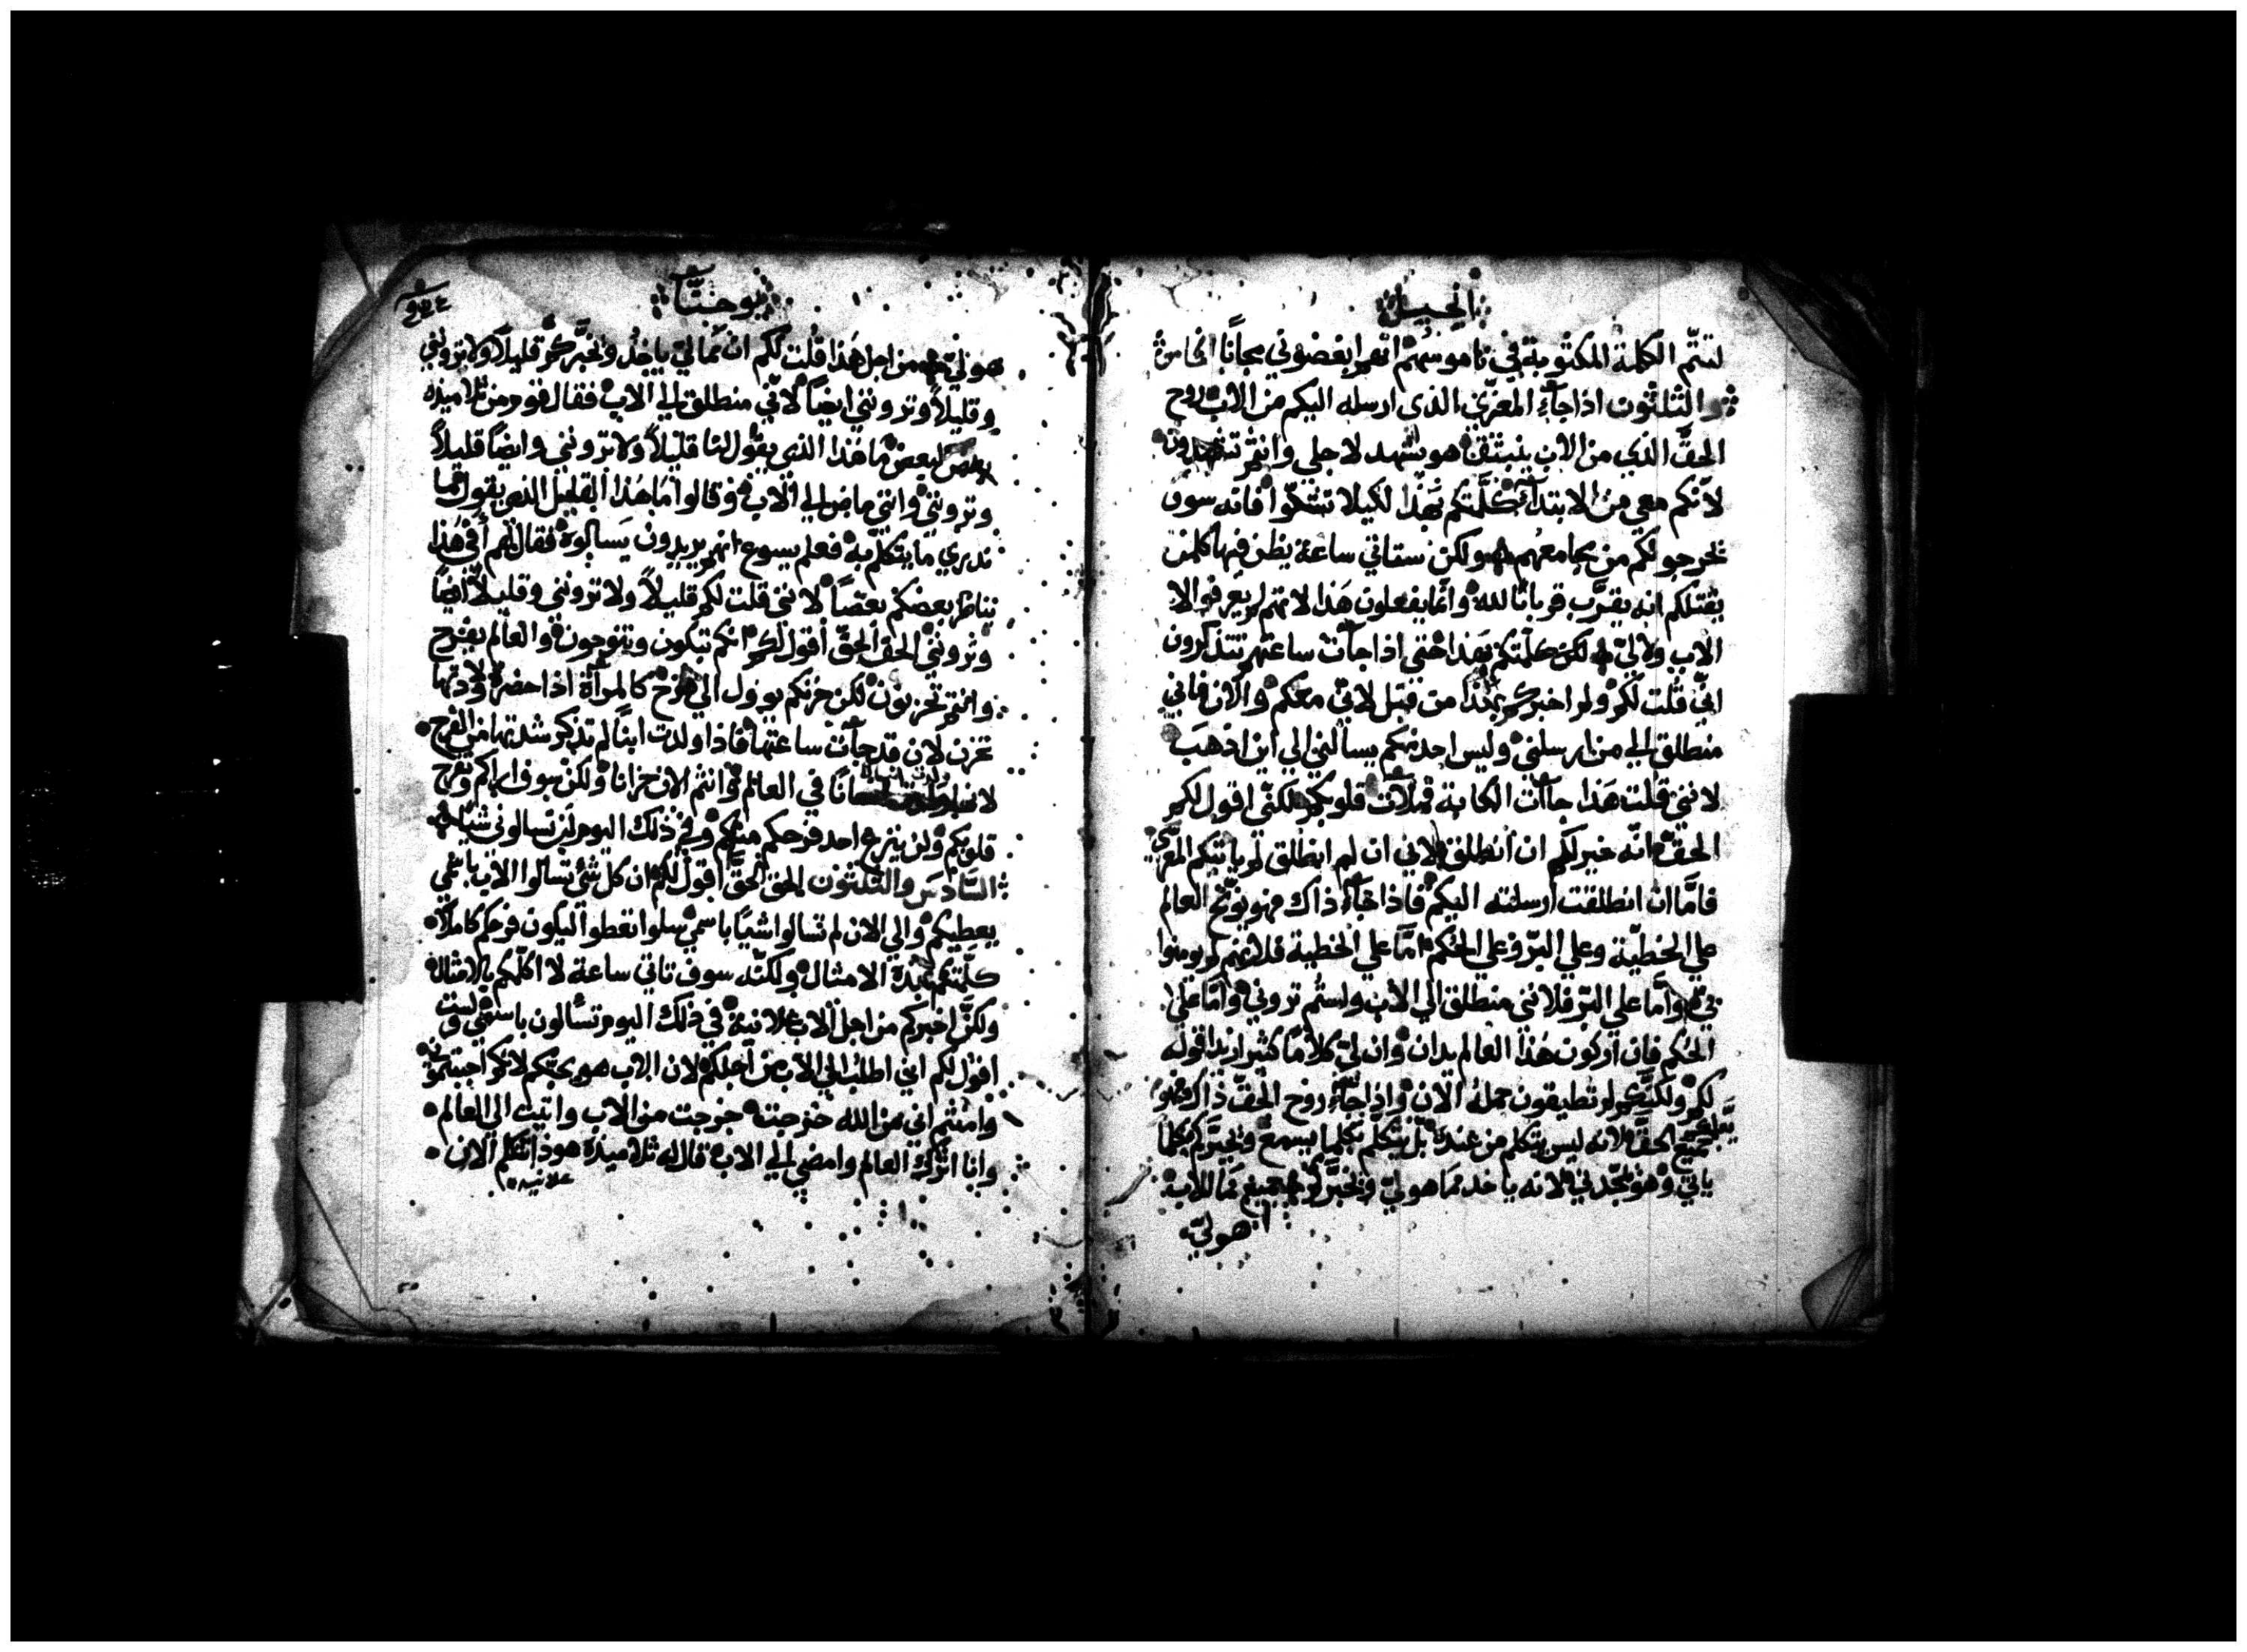 انجيل
لتتم الكلمة المكتوبة في ناموسهم انهم ابغضوني مجانًا الخامس
والثلثون اذا جآء المعزّي الذي ارسله اليكم من الاب روح
الحقّ الذي من الاب ينبثق هو يشهد لاجلي وانتم تشهدون
لانّكم معي من الابتدآء كلّمتكم بهذا لكيلا تشكّوا فانه سوف
يخرجونكم من مجامعهم ولكن ستاتي ساعة يظن فيها كلمن
يقتلكم انه يقرّب قربانًا لله وانما يفعلون هذا لانهم لم يعرفوا لا
الاب ولا لي لكن كلّمتكم بهذا حتي اذا جآت ساعتهم تتذكرون
انّي قلت لكم ولم اخبركم بهذا من قبل لانّي معكم والان فاني
منطلق الي من ارسلني وليس احد منكم يسالني الي اين اذهب
لانني قلت هذا جآت الكابة فملآت قلوبكم لكنّي اقول لكم
الحق انّه خير لكم ان انطلق لاني ان لم انطلق لم ياتيكم المعزّي
فامّا ان انطلقت ارسلته اليكم فاذا جآء ذاك فهو يوبّخ العالم
علي الخطيّة وعلي البرّ وعلي الحكم امّا علي الخطية فلانهم لم يومنوا
بي وامّا علي البرّ فلانني منطلق الي الاب ولستم تروني وامّا علي
الحكم فان اركون هذا العالم يدان وان لي كلامًا كثير اريد اقوله
لكم ولكنّكم لم تطيقون حمله الان واذا جآء روح الحقّ ذاك فهو
يعلمكم جميع الحقّ لانه ليس يتكلم من عنده بل يتكلم بكلما يسمع ويخبركم بكلما
ياتي وهو يمجّدني لانه ياخد ممّا هو لي ويخبّركم جميع مما للاب
هو لي
يوحنّا
هو لي من اجل هذا قلت لكم ان ممّا لي ياخد ويخبّركم قليلًا ولا تروني
وقليلًا وترونني ايضًا لانّي منطلق الي الاب فقال قوم من تلاميذه
بعض لبعض ما هذا الذي يقول لنا قليلًا ولا ترونني وايضًا قليلًا
وتروني وانني ماض الي الاب وقالوا ما هذا القليل الذي يقول فما
ندري ما يتكلم به فعلم يسوع انهم يريدون يسالوه فقال لهم أفي هذا
يناظر بعضكم بعضًا لانني قلت لكم قليلًا ولا ترونني وقليلًا ايضًا
وترونني الحق الحقّ اقول لكم انكم تبكون وتنوحون والعالم يفرح
وانتم تحزنون لكن حزنكم يوول الي فرح كالمرآة اذا حضرة ولادتها
تحزن لان قد جآت ساعتها فاذا ولدت ابنًا لم تذكر شدتها من الفرح
لانها ولدت انسانًا في العالم وانتم الان حزانا ولكن سوف اراكم وتفرح
قلوبكم ولن ينزع احد فرحكم منكم وفي ذلك اليوم لن تسالوني شيًا
السادس والثلثون الحق الحقّ اقول لكم ان كل شي تسالوا الاب باسمي
يعطيكم والي الان لم تسالوا شيًا باسمي سلوا تعطوا ليكون فرحكم كاملًا
كلّمتكم بهذه الامثال ولكنّه سوف تاتي ساعة لا اكلّمكم بالامثال
ولكنّ اخبركم من اجل الاب علانية في ذلك اليوم تسالون باسمي ولست
اقول لكم اني اطلب الي الاب من اجلكم لان الاب هو يحبكم لانكم احببتموني
وامنتم اني من الله خرجت خرجت من الاب واتيت الي العالم
وانا اترك العالم وامضي الي الاب قال له تلاميذه هوذا تتكلم الان
علانيه